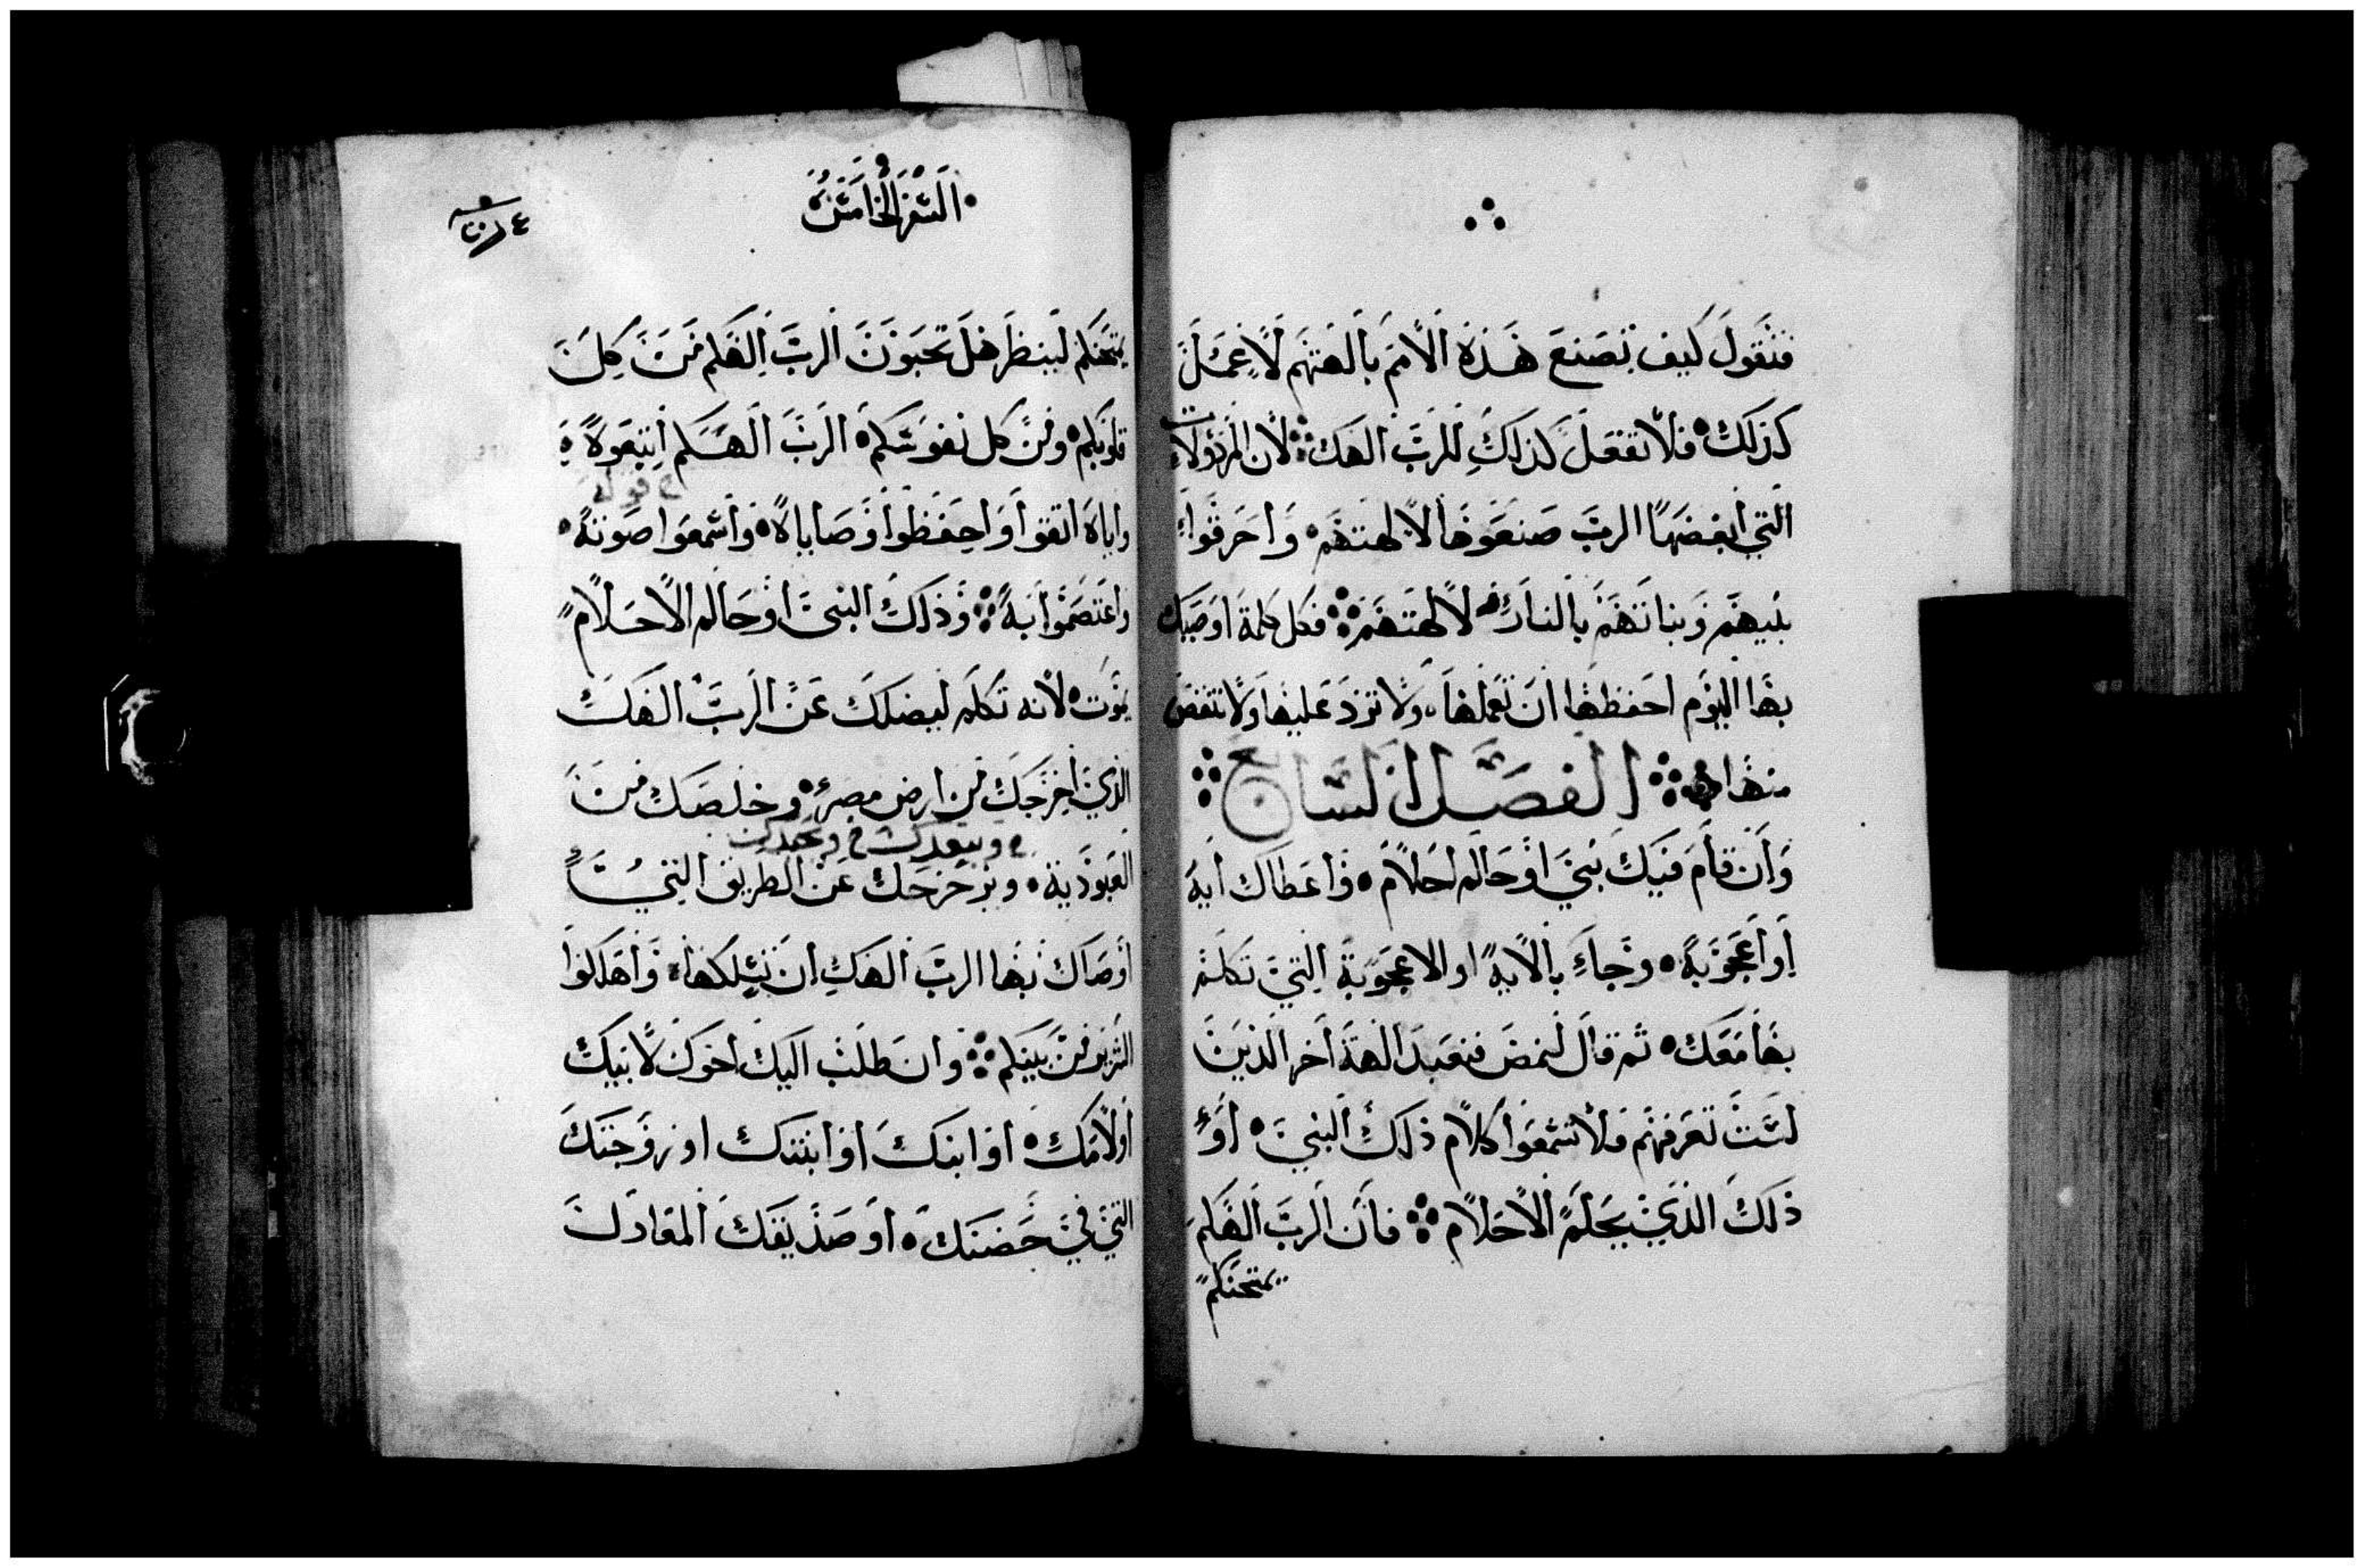 فنقول كيف تصنع هذه الأمم بالهتهم لأعمل
كذلك فلا تفعل كذلك للرب الهك لأن المرذولات
التي ابغضها الرب صنعوها لالهتهم وأحرقوا
بنيهم وبناتهم بالنار لالهتهم فكل كلمة اوصيك
بها اليوم احفظها ان تعملها ولا تزد عليها ولا تنقص
منها الفصل السابع
وأن قام فيك نبي او حالم احلام وأعطاك ايه
أو أعجوبة وجاء بالايه او الاعجوبة التي تكلم
بها معك ثم قال لنمض فنعبد الهة أخر الذين
لست تعرفهم فلا تسمعوا كلام ذلك النبي أو
ذلك الذي يحلم الأحلام فان الرب الهكم
يمتحنكم
السفر الخامس
يمتحنكم لينظر هل تحبون الرب الهكم من كل
قلوبكم ومن كل نفوسكم الرب الهكم اتبعوه
واياه اتقوا واحفظوا وصاياه وأسمعوا صوته
واعتصموا به وذلك النبي أو حالم الاحلام
يموت لأنه تكلم ليضلك عن الرب الهك
الذي أخرجك من ارض مصر وخلصك من
ويبعدك
العبودية ويزحزحك عن الطريق التي
أوصاك بها الرب الهك ان تسلكها وأهلكوا
الشرير من بينكم وان طلب اليك اخوك لأبيك
أو لأمك أو ابنك أو ابنتك او زوجتك
التي في حضنك أو صديقك المعادل